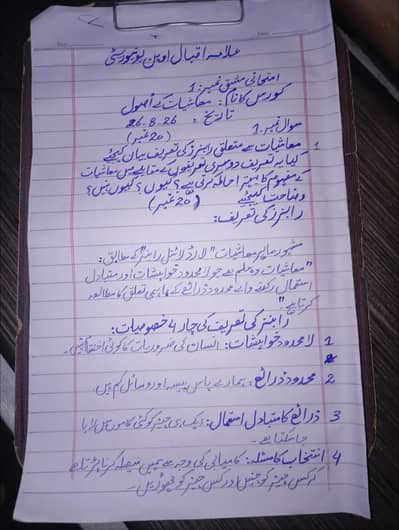 علامہ اقبال اوپن یونیورسٹی
امتحانی مشق نمبر: 1
کورس کا نام: معاشیات کے اصول
تاریخ: 26-8-26
سوال نمبر 1 (20 نمبر)
1 معاشیات سے متعلق رابنز کی تعریف بیان کیجئے
کیا یہ تعریف دوسری تعریفوں کے مقابلے میں معاشیات
کے مفہوم کا بہتر احاطہ کرتی ہے؟ کیوں؟ کیوں نہیں؟
وضاحت کیجئے (20 نمبر)
رابنز کی تعریف:
مشہور ماہر معاشیات "لارڈ لائنل رابنز" کے مطابق:
"معاشیات وہ علم ہے جو لامحدود خواہشات اور متبادل
استعمال رکھنے والے محدود ذرائع کے باہمی تعلق کا مطالعہ
کرتا ہے"
رابنز کی تعریف کی چار 4 خصوصیات:
1 لامحدود خواہشات: انسان کی ضروریات کا کوئی اختتام نہیں۔
2 محدود ذرائع: ہمارے پاس پیسہ اور وسائل کم ہیں
3 ذرائع کا متبادل استعمال: ایک ہی چیز کو کئی کاموں میں لایا
جا سکتا ہے۔
4 انتخاب کا مسئلہ: کی وجہ سے ہمیں فیصلہ کرنا پڑتا ہے
کہ کس چیز کو چنیں اور کس چیز کو چھوڑیں۔